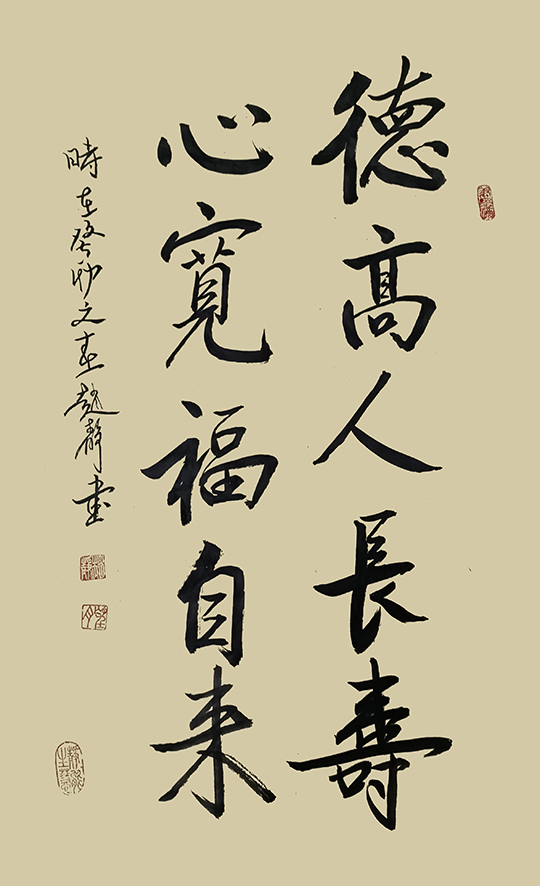 德高人長壽
心寬福自来
時在癸卯之春趙静書